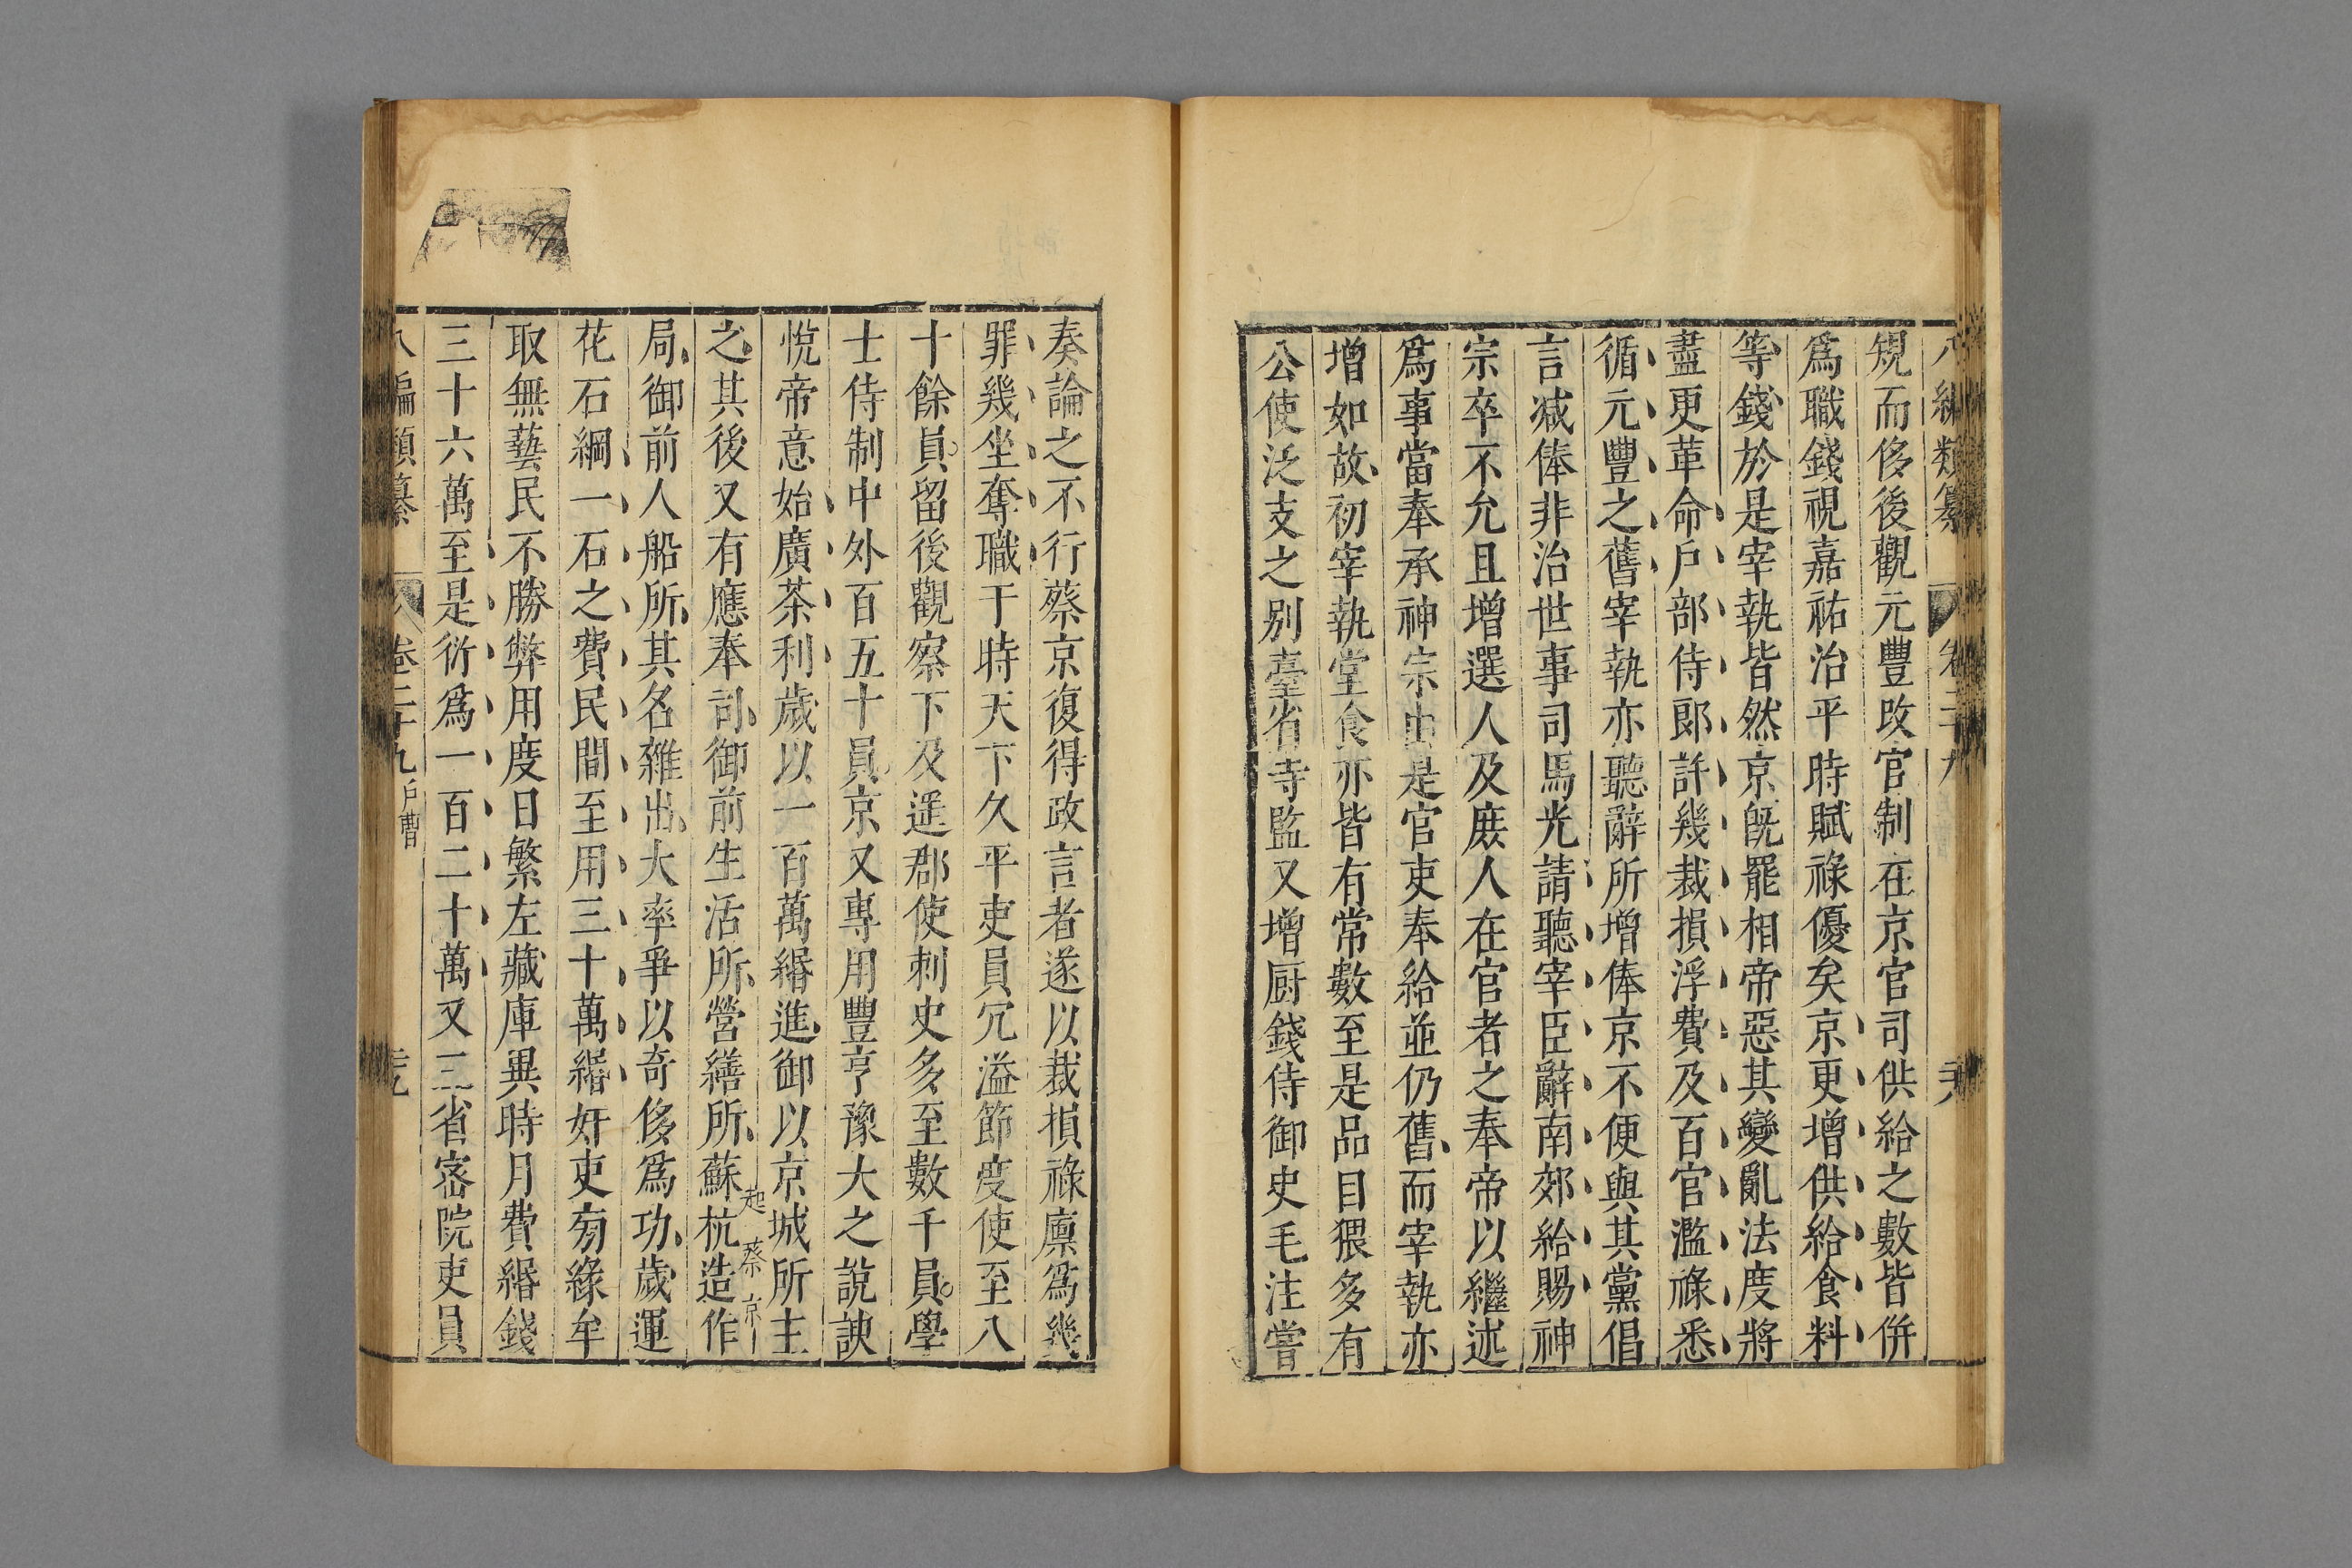 八編類纂 卷二十九
規而侈後觀元豐攺官制在京官司供給之數皆併
爲職錢視嘉祐治平時賦祿優矣京更增供給食料
等錢於是宰執皆然京旣罷相帝惡其變亂法度將
盡更革命戶部侍郎許幾裁損浮費及百官濫祿悉
循元豐之舊宰執亦聽辭所增俸京不便與其黨倡
言减俸非治世事司馬光請聽宰臣辭南郊給賜神
宗卒不允且增選人及庶人在官者之奉帝以繼述
爲事當奉承神宗由是官吏奉給並仍舊而宰執亦
增如故初宰執堂食亦皆有常數至是品目猥多有
公使泛支之别臺省寺監又增厨錢侍御史毛注嘗
奏論之不行蔡京復得政言者遂以裁損祿廪爲幾
罪幾坐奪職于時天下久平吏員冗溢節度使至八
十餘員留後觀察下及遥郡使刺史多至數千員學
士侍制中外百五十員京又專用豐亨豫大之說諛
悅帝意始廣茶利歲以一百萬緡進御以京城所主
之其後又有應奉司御前生活所營繕所蘇杭造作
起蔡京
局御前人船所其名雜出大率爭以奇侈爲功歲運
花石綱一石之費民間至用三十萬緡奸吏旁緣牟
取無藝民不勝弊用度日繁左藏庫異時月費緡錢
三十六萬至是衍爲一百二十萬又三省宻院吏員
八編類纂 卷二十九 戶曹